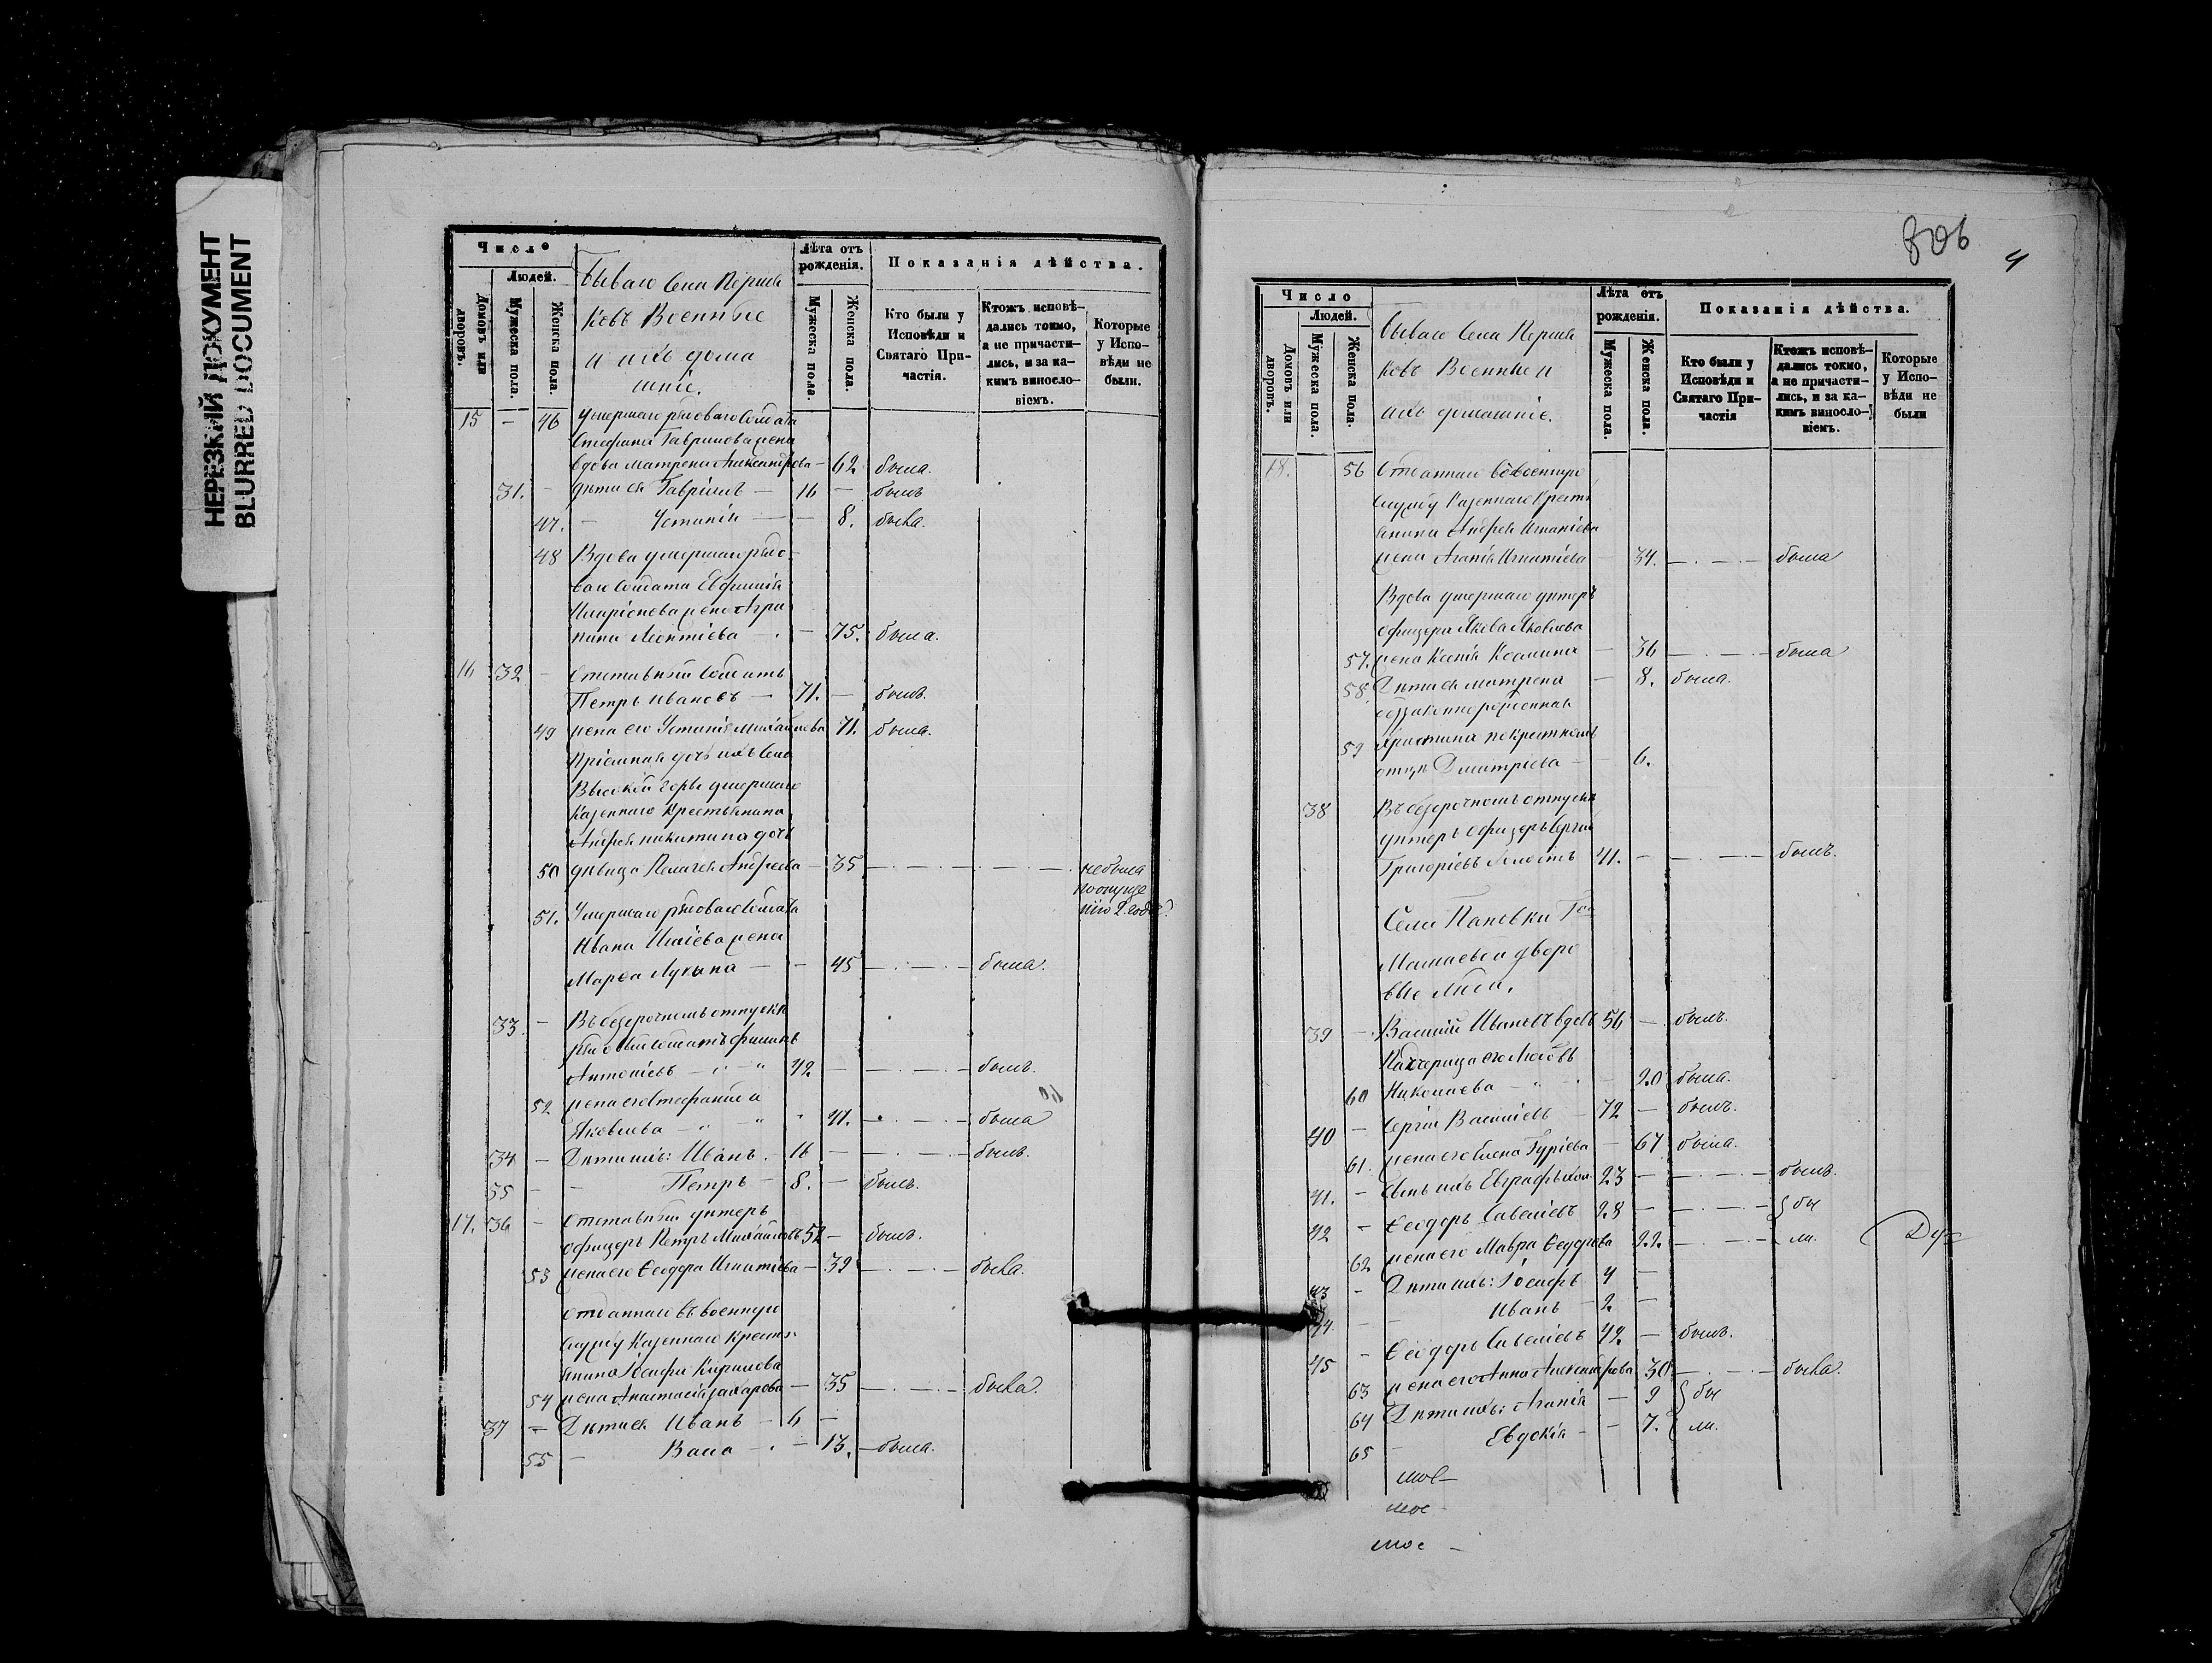 НЕРЕЗКИЙ ДОКУМЕНТ
BLURRED DOCUMENT
Число
Людей.
Домовъ или дворовъ.
Мужеска пола.
Женска пола.
Бываго Села Перши
ковъ Военные
и ихъ дома
шніе.
Лѣта отъ рожденія.
Мужеска пола.
Женска пола.
Показанія дѣйства.
Кто были у Исповѣди и Святаго Причастія.
Ктожъ исповѣдались токмо, а не причастились, и за какимъ винословіемъ.
Которые у Исповѣди не были.
15 — 46 умершаго рядоваго Солдата
Стефана Гаврилова жена
вдова Матрена Александрова — 62 была.
31. — дѣти ея Гавріилъ — 16 — былъ
47. — Устинія — — 8. была.
48 Вдова умершаго рядо
ваго Солдата Евфимія
Иларіонова жена Агри
пина Леонтіева — — 75. была.
16 32 — Отставный Солдатъ
Петръ Ивановъ — 71. — былъ.
49 жена его Устинія Михайлова 71. была.
Пріемная дочь ихъ Села
Высокой Горы умершаго
Казеннаго Крестьянина
Андрея Никитина дочь
50 дѣвица Пелагея Андреева — 35 — не была
по опуще
нію 2 года.
51. Умершаго рядоваго Солдата
Ивана Иліева жена
Марѳа Лукина — — 45 — была.
33. — Въ безсрочномъ отпускѣ
рядовый Солдатъ Филипъ
Антоніевъ — 42 — — былъ.
52 жена его Стефанида
Яковлева — 41. — была
34 — Дѣти ихъ: Иванъ. 16 — — былъ.
55 — — Петръ — 8. — былъ.
17. 36 — Отставный унтеръ
офицеръ Петръ Михайловъ 52 — былъ.
53 жена его Ѳеодора Игнатіева — 39 — была.
Отданнаго въ военную
службу Казеннаго Кресть
янина Іосифа Кирилова
54 жена Анастасія Захарова — 35 — была.
37 — Дѣти ея Иванъ — 6 —
55 — Васа — — 13. — была.
806
4
Число
Людей.
Домовъ или дворовъ.
Мужеска пола.
Женска пола.
Бываго Села Перши
ковъ Военные и
ихъ домашніе.
Лѣта отъ рожденія.
Мужеска пола.
Женска пола.
Показанія дѣйства.
Кто были у Исповѣди и Святаго Причастія
Ктожъ исповѣдались токмо, а не причастились, и за какимъ винословіемъ.
Которые у Исповѣди не были
18. 56 Отданнаго въ военную
службу Казеннаго Кресть
янина Андрея Игнатіева
жена Агапія Игнатіева — 34. — была
Вдова умершаго унтеръ
офицера Якова Яковлева
57. жена Ксенія Космина — 36 — была
58. Дѣти ея Матрена — 8. была.
незаконнорожденная
59 Христина по крестномъ
отцѣ Дмитріева — 6.
38 Въ безсрочномъ отпускѣ
унтеръ офицеръ Сергій
Григоріевъ холостъ 41. — — былъ.
Села Пановки Го
Мошаевы дворо
вые люди.
39 — Василій Ивановъ вдовъ 56 — былъ.
Падчерица его Любовь
60 Николаева — 20 была.
40 — Сергій Василіевъ — 72 — былъ.
61. жена его Елена Гуріева — 67 была.
41. — Сынъ ихъ Евграфъ хол. 23 — — былъ.
42 — Ѳеодоръ Савеліевъ 28 — — бы
62 жена его Мавра Ѳедорова 22. — ли.
43 — Дѣти ихъ: Іосифъ 4 —
44. — — Иванъ — 2. —
45 — Ѳеодоръ Савеліевъ 42. — былъ.
63 жена его Анна Александрова 30 — была.
64 Дѣти ихъ: Агапія — 9 бы
65 — Евдокія — — 7. ли.